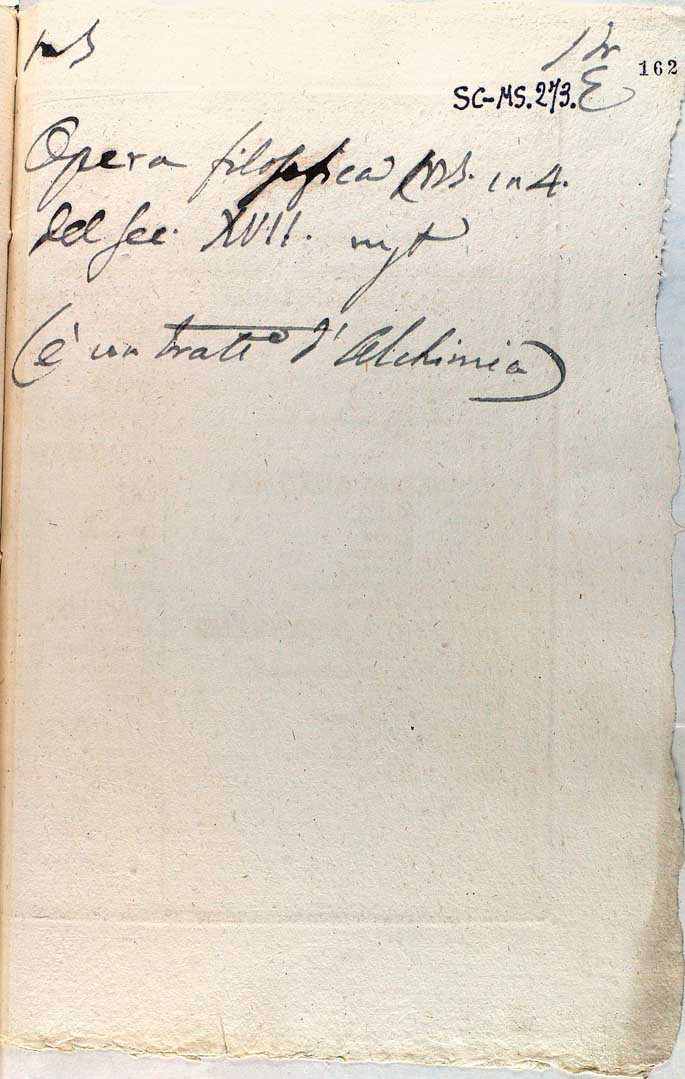 162
SC-MS.273.E
Opera filosofica MS. in 4.
del sec. XVII.
(è un tratto d'Alchimia)